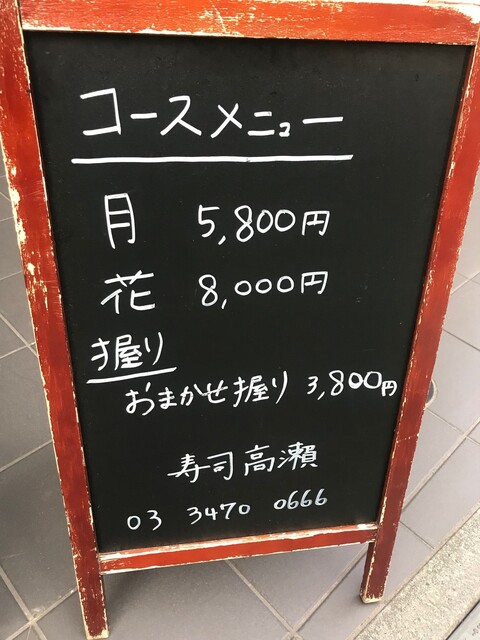 コースメニュー
月 5,800円
花 8,000円
握り
おまかせ握り 3,800円
寿司高瀬
03 3470 0666